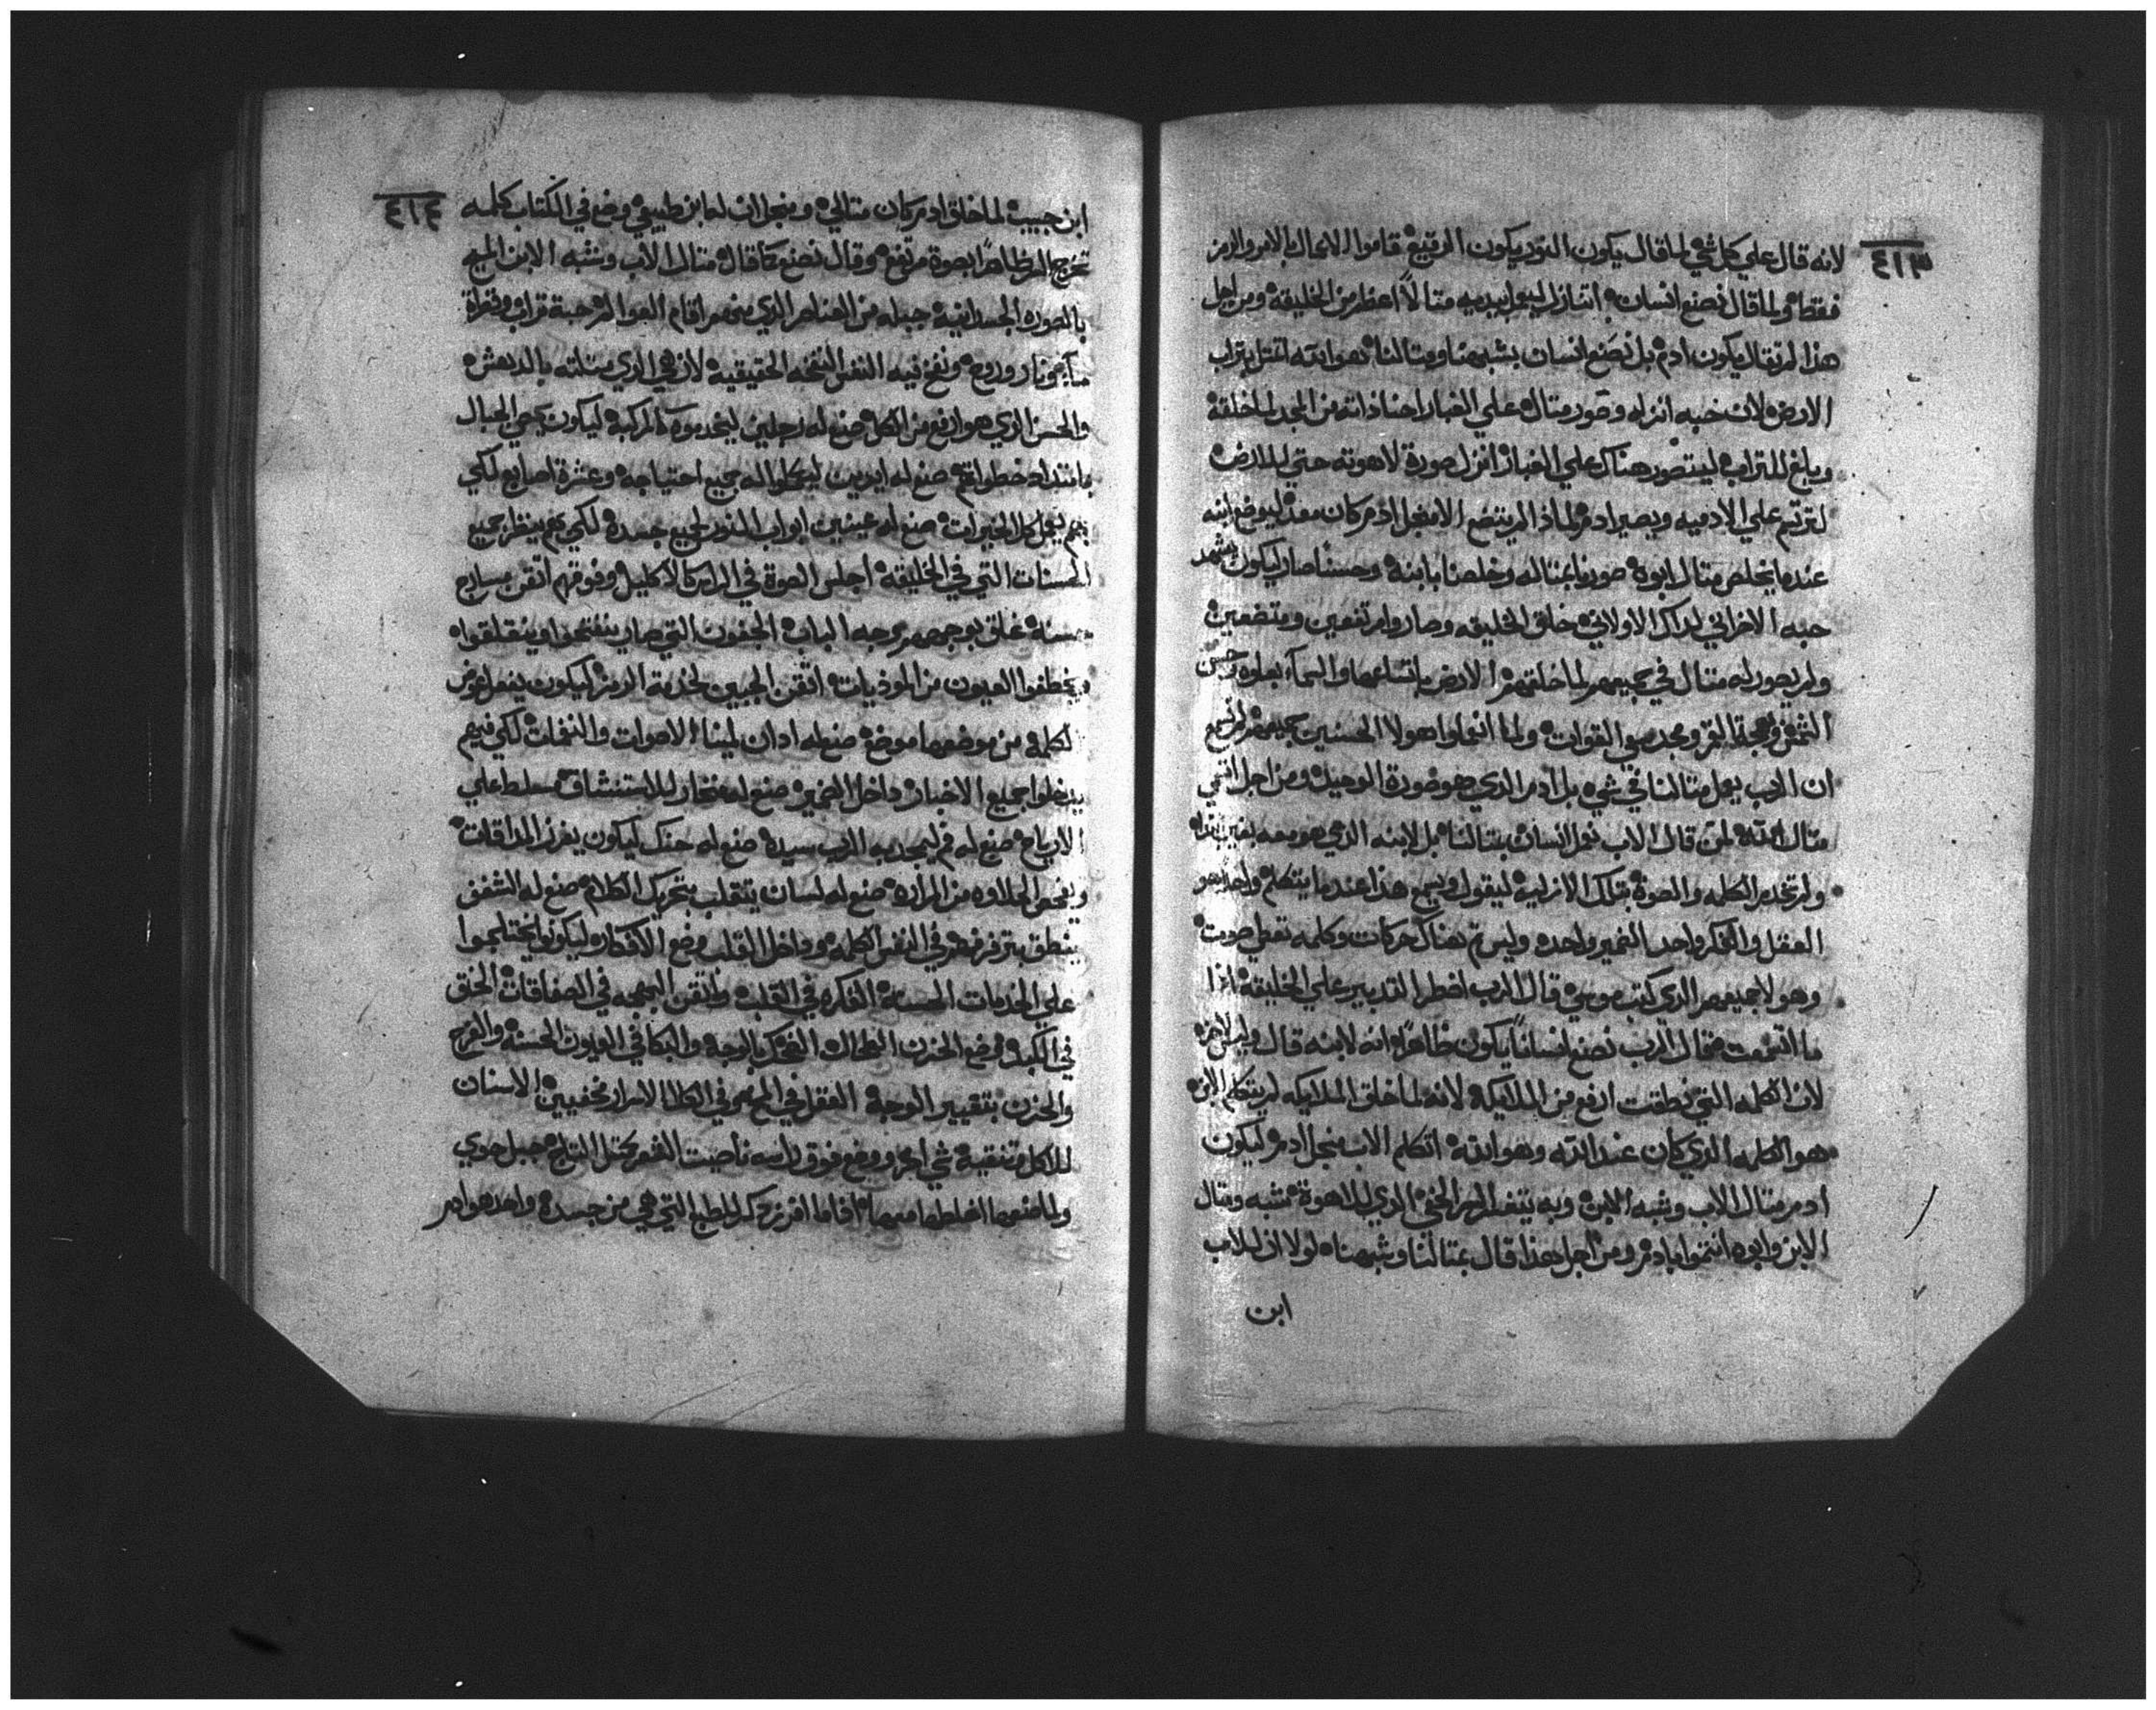 ٤١٣
لانه قال علي كل شي لما قال يكون النور يكون الرقيع قاموا الاعمال بالامر والرمز
فقط ولما قال نصنع انسان اتنازل ليعمل بيديه متالاً اعظم من الخليقة ومن اجل
هذا لم يقال يكون ادم بل نصنع انسان بشبهنا ومتالنا هوا بداته بتراب
الارض لان حبه انزله وصور متاله علي الغبار احنا ذاته من المجد لما خلقه
وبلغ للتراب ليتصور هناك علي الغبار انزل صورة لاهوته حتي للارض
لترتسم علي الادميه ويصير ادم لماذا لم يتضع الا منجل ادم كان معد ليوضع ابنه
عندما يخلص متال ابوه صورنا بمتاله وخلصنا بابنه وحسناً صار ليكون يشهد
حبه الاخراني لداك الاولاني خلق الخليقه وصاروا مرتفعين ومتضعين
ولم يصور له متال في جميعهم لما خلقهم الارض باتساعها والسماء بعلوه وحسن
الشمس وبهجة القمر ومجد القوات ولما هولا الحسنين جميعهم لم نسمع
ان الرب يعمل متالنا في شي بل ادم الدي هو صورة الوحيد ومن اجل
متال الله لمن قال الاب نعمل انسان بمتالنا بل لابنه الدي هو معه بغير
ولم تخدم الكلمه والصوة بتلك الازليه ليقول ويسمع هذا عندما يتكلم واحد هو
العقل والفكر واحد الضمير واحده وليس تم هناك حركات وكلمه تعطي صوت
وهولا جميعهم الدي كتب موسي قال الرب اضطر التدبير علي الخليقه اذا
ما اتضعت فقال الرب نصنع انساناً يكون ظاهراً انه لابنه قال
لان الكلمه التي نطقت ارفع من الملايكه لانه لما خلق الملايكه لم يتكلم الابن
هو الكلمه الدي كان عند الله وهو الله اتكلم الاب منجل ادم ليكون
ادم متال الاب وشبه الابن وبه يتفسر السر الخفي الدي للاهوة شبه ومتال
الابن وابوه بادم ومن اجل هذا قال بمتالنا وشبهنا لولا ان للاب
ابن
٤١٤
ابن حبيب لما خلق ادم كان متالي ومنجل ان له ابن طبيعي وضع في الكتاب كلمه
تخرج السر ظاهراً بصوة مرتفع وقال نصنع كما قال متال الاب وشبه الابن
بالصوره الجسدانيه جبله من العناصر الدي منهم اقام العوالم حبة تراب وقطرة
ماء ونار وروح ونفخ فيه النفس النفخه الحقيقيه لان هي الدي متلته بالدهش
والحسن الدي هو ارفع من الكل صنع له رجلين ليخدموه كالمركبه ليكون الجبال
بامتداد خطواته صنع له ايديين ليكملوا له جميع احتياجه وعشرة اصابع لكي
بهم يعمل كل الخيرات صنع له عينين ابواب للنور لجميع جسده لكي بهم ينظر جميع
الحسنات التي في الخليقه اجلس القوة في الراس كالاكليل وفوقهم اتقن مسارج
حسنة غلق بوجههم الباب الجفون التي صارينفتحوا وينغلقوا
ويخطفوا العيون من الموذيات اتقن الجبين لخدمة الرمز ليكون ينعمل عوض
الكلمه من موضعها موضع صنع له ادان لمينا الاصوات والنغمات لكي فيهم
يدخلوا جميع الاخبار داخل الضمير صنع له منخار للاستنشاق مسلط علي
الارياح صنع له فم ليمجد به الرب سيده صنع له حنك ليكون يفرز المداقات
ويفحص الحلاوه من المراره صنع له لسان يتقلب بتحريك الكلام صنع له الشفف
ينطق في النفس الكلمه وداخل القلب وضع الافكار ليكونوا
علي الخدمات الحسنه الفكره في القلب واتقن البهجه في الصفاقات الخلق
في الكبد وضع الحزن الطحال الضحك بالوجه والبكا في العيون الحسنه والفرح
والحزن بتغيير الوجه العقل في المخ وفي الكلا الاسرار مخفيين الاسنان
للاكل وتنقية شي اخر ووضع فوق راسه ناصيت الشعر كمتل التاج جبل حوي
ولما صنعها اخلطها معها اقاما الفرز دكر الطبع التي هي من جسده واحد هو ادم